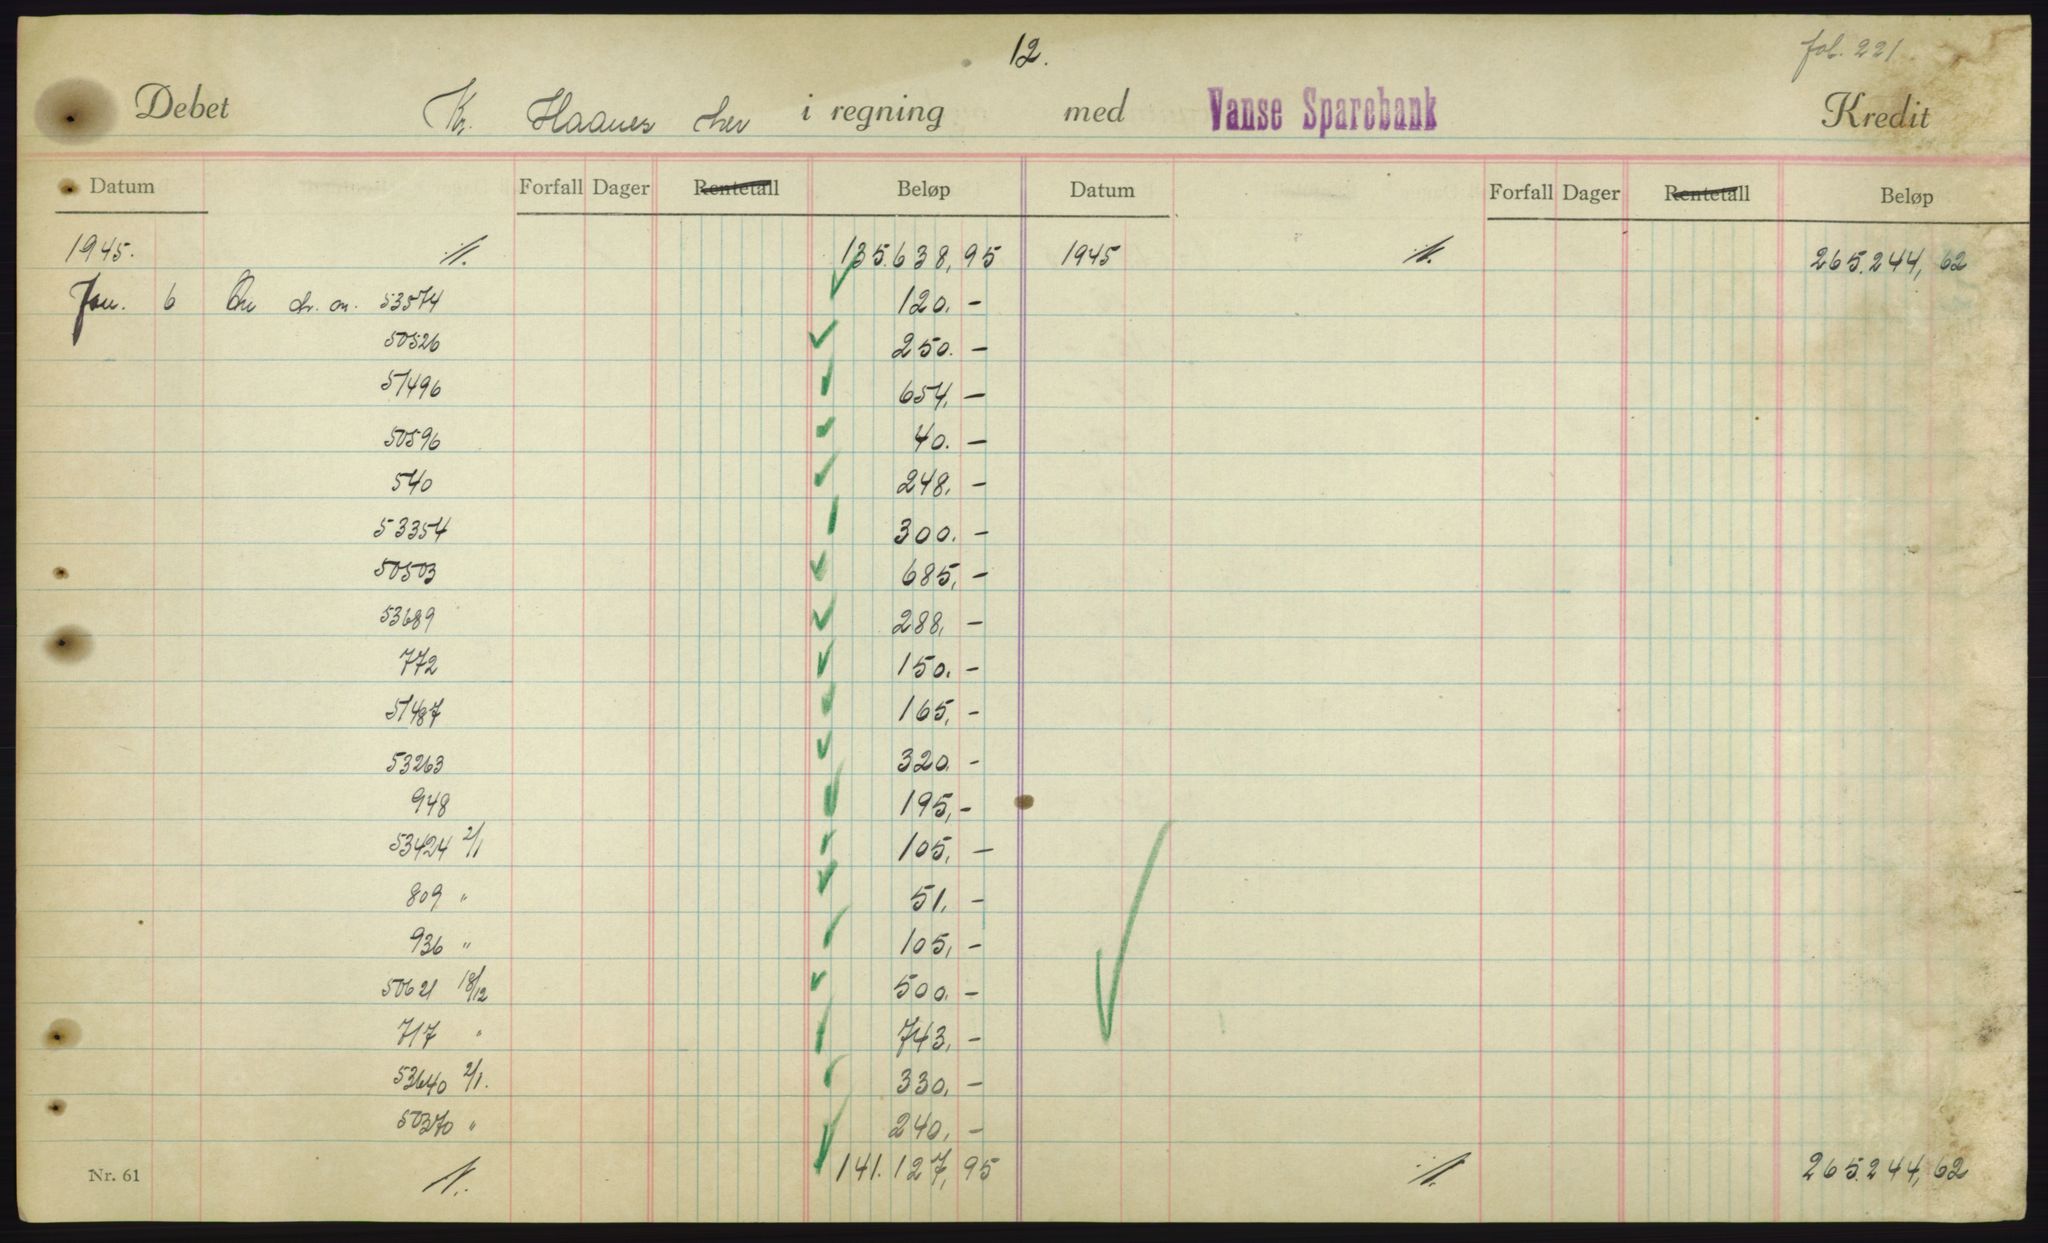 12.
fol. 221
Debet Kr. Haanes her i regning med Vanse Sparebank Kredit
Datum Forfall Dager Rentetall Beløp Datum Forfall Dager Rentetall Beløp
1945. 135.638,95 1945 265.244,62
Jan. 6 53574 120.-
50526 250.-
51496 654,-
50596 40.-
540 248,-
53354 300.-
50503 685,-
53689 288,-
772 150.-
51487 165,-
53263 320.-
948 195,-
53424 2/1 105,-
809 " 51,-
936 " 105,-
50621 18/12 500.-
717 " 743,-
53640 2/1. 330,-
50370 " 240,-
Nr. 61 141.127,95 265.244,62